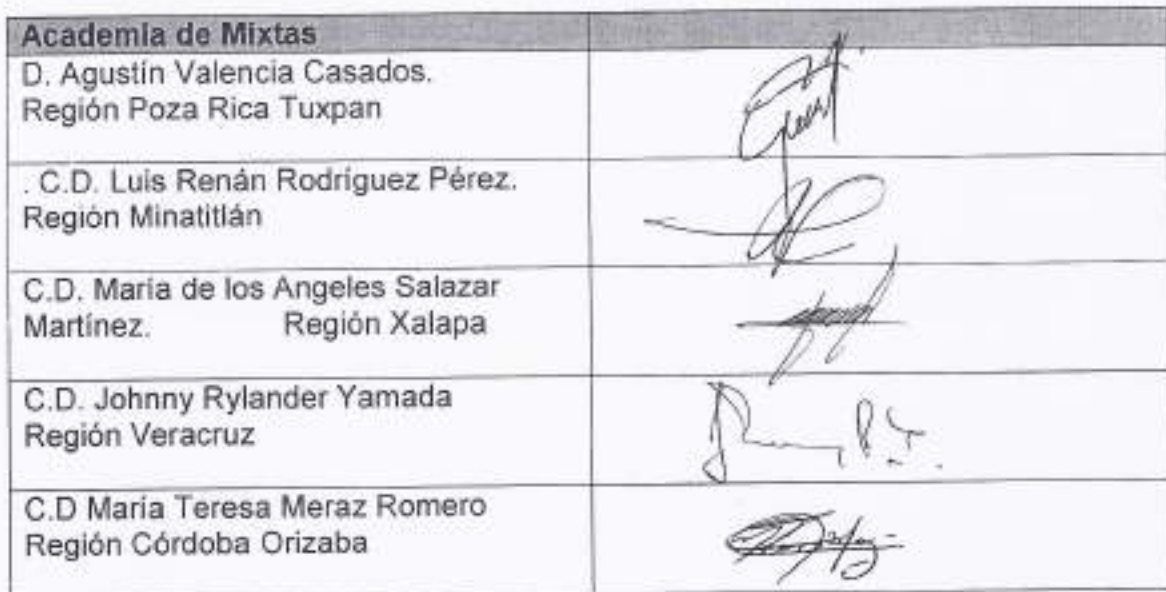 Academia de Mixtas
D. Agustín Valencia Casados.
Región Poza Rica Tuxpan
. C.D. Luis Renán Rodríguez Pérez.
Región Minatitlán
C.D. Maria de los Angeles Salazar
Martínez. Región Xalapa
C.D. Johnny Rylander Yamada
Región Veracruz
C.D María Teresa Meraz Romero
Región Córdoba Orizaba